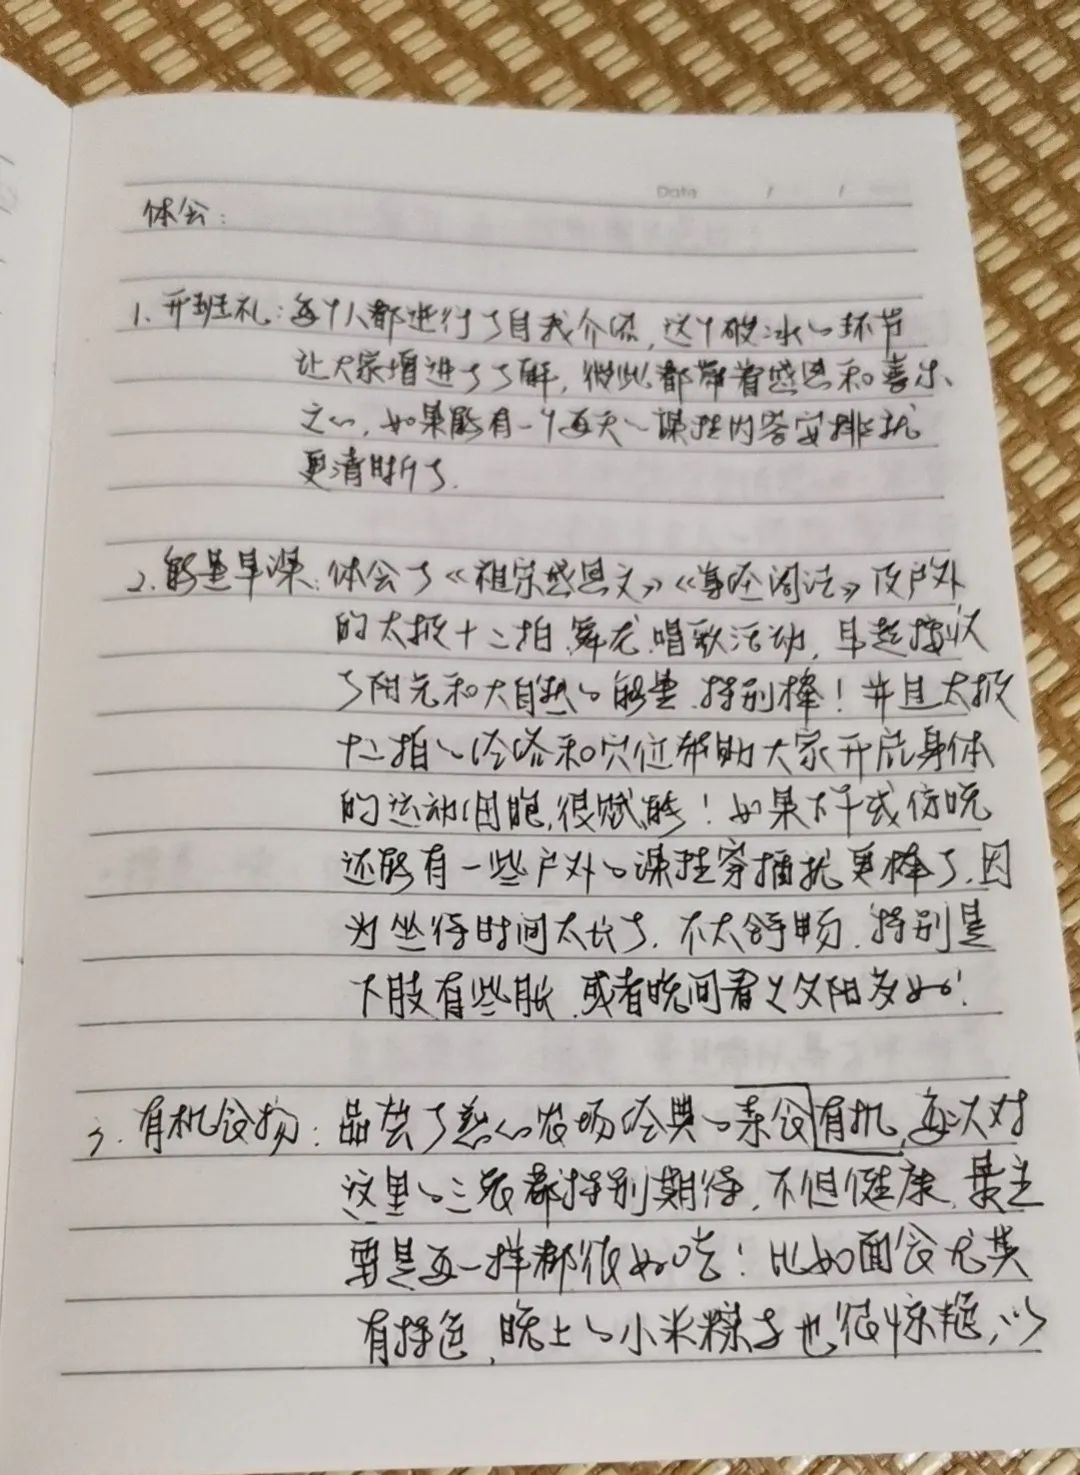 Date / /
体会:
1. 开班礼:每个人都进行了自我介绍,这个破冰的环节
让大家增进了了解,彼此都带着感恩和喜乐
之心,如果能有一个每天的课程内容安排就
更清晰了.
2. 能量早课:体会了《祖宗感恩文》《身
及户外
的太极十二拍.舞龙.唱歌活动,早起接收
了阳光和大自然的能量.特别棒!并且太极
十二拍的经络和穴位帮助大家开启身体
的运动细胞,很赋能!如果下午或傍晚
还能有一些户外的课程穿插就更棒了.因
为坐得时间太长了.不太舒畅.特别是
下肢有些胀.或者晚间看之夕阳多好.
3. 有机食物:品尝了
农场经典的菜食有机,每次对
这里的三餐都特别期待,不但健康,最主
要是每一样都很好吃!比如面食尤其
有特色,晚上的小米粽子也很惊艳,以